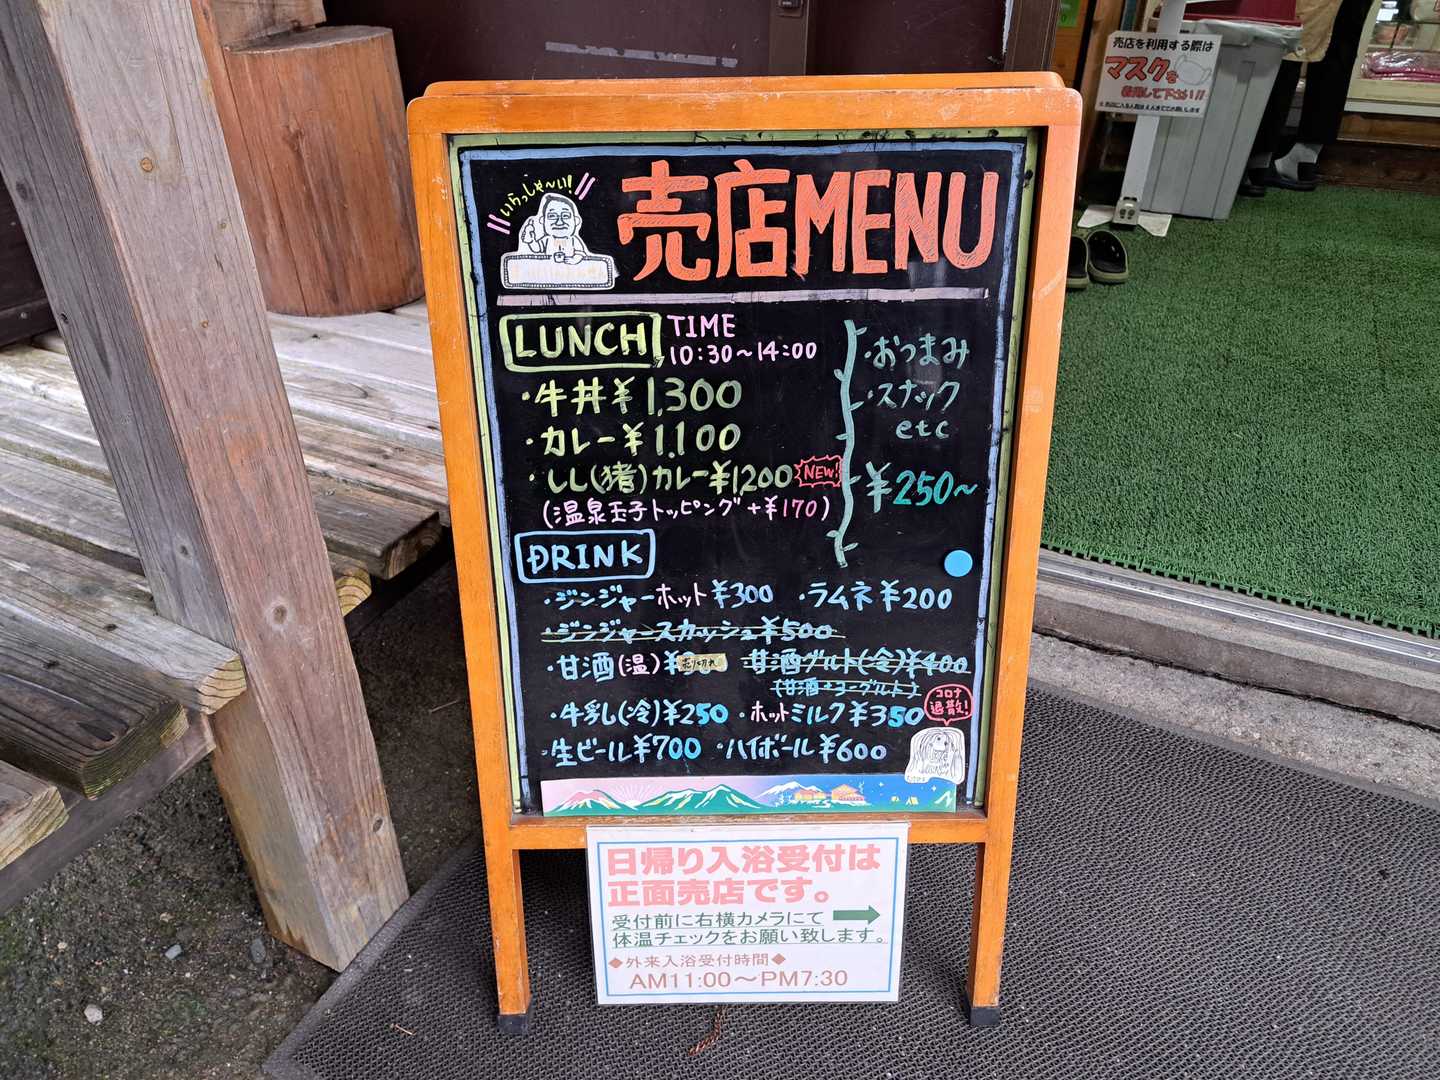 売店を利用する際は
マスクを
着用して下さい!!
いらっしゃ〜い!
売店MENU
LUNCH TIME
10:30〜14:00
・牛丼¥1,300
・カレー¥1,100
・しし(猪)カレー¥1200 NEW!
(温泉玉子トッピング+¥170)
・おつまみ
・スナック
etc
¥250〜
DRINK
・ジンジャーホット¥300 ・ラムネ¥200
・ジンジャースカッシュ¥500
・甘酒(温)¥ 売り切れ 甘酒グルト(冷)¥400
(甘酒+ヨーグルト)
・牛乳(冷)¥250 ・ホットミルク¥350
コロナ
退散!
・生ビール¥700 ・ハイボール¥600
日帰り入浴受付は
正面売店です。
受付前に右横カメラにて
体温チェックをお願い致します。
◆外来入浴受付時間◆
AM11:00〜PM7:30